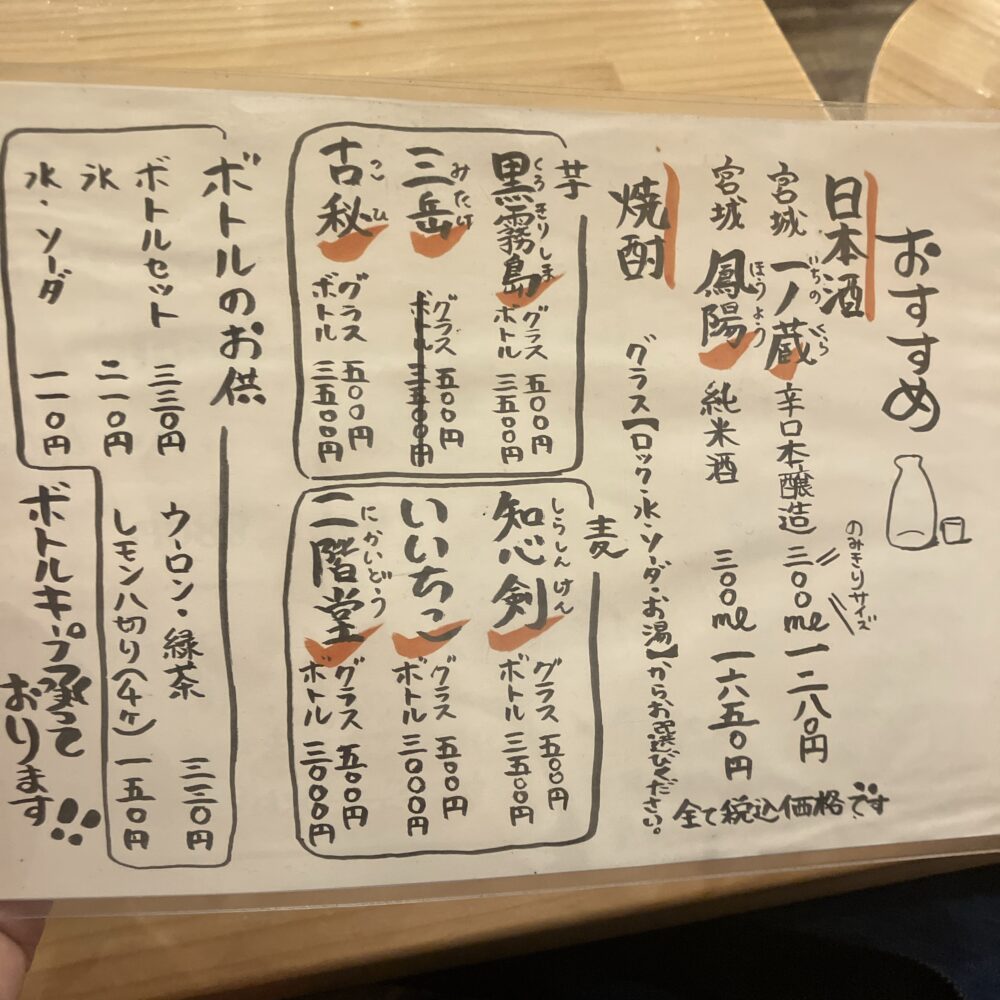 おすすめ
日本酒
宮城 一ノ蔵 辛口本醸造 三〇〇ml 一二八〇円
いちの くら
のみきりサイズ
宮城 鳳陽 純米酒 三〇〇ml 一六五〇円
ほうよう
全て税込価格です
焼酎
グラス【ロック・水・ソーダ・お湯】からお選びください。
芋
黒霧島
くろきりしま
グラス 五〇〇円
ボトル 三五〇〇円
三岳
みたけ
グラス 五〇〇円
ボトル 三五〇〇円
古秋
こひ
グラス 五〇〇円
ボトル 三五〇〇円
麦
知心剣
しらしんけん
グラス 五〇〇円
ボトル 三五〇〇円
いいちこ
グラス 五〇〇円
ボトル 三〇〇〇円
二階堂
にかいどう
グラス 五〇〇円
ボトル 三〇〇〇円
ボトルのお供
ボトルセット 三三〇円
氷 二一〇円
水・ソーダ 一一〇円
ウーロン・緑茶 三三〇円
レモン八切り(4ヶ) 一五〇円
ボトルキープ承って
おります!!